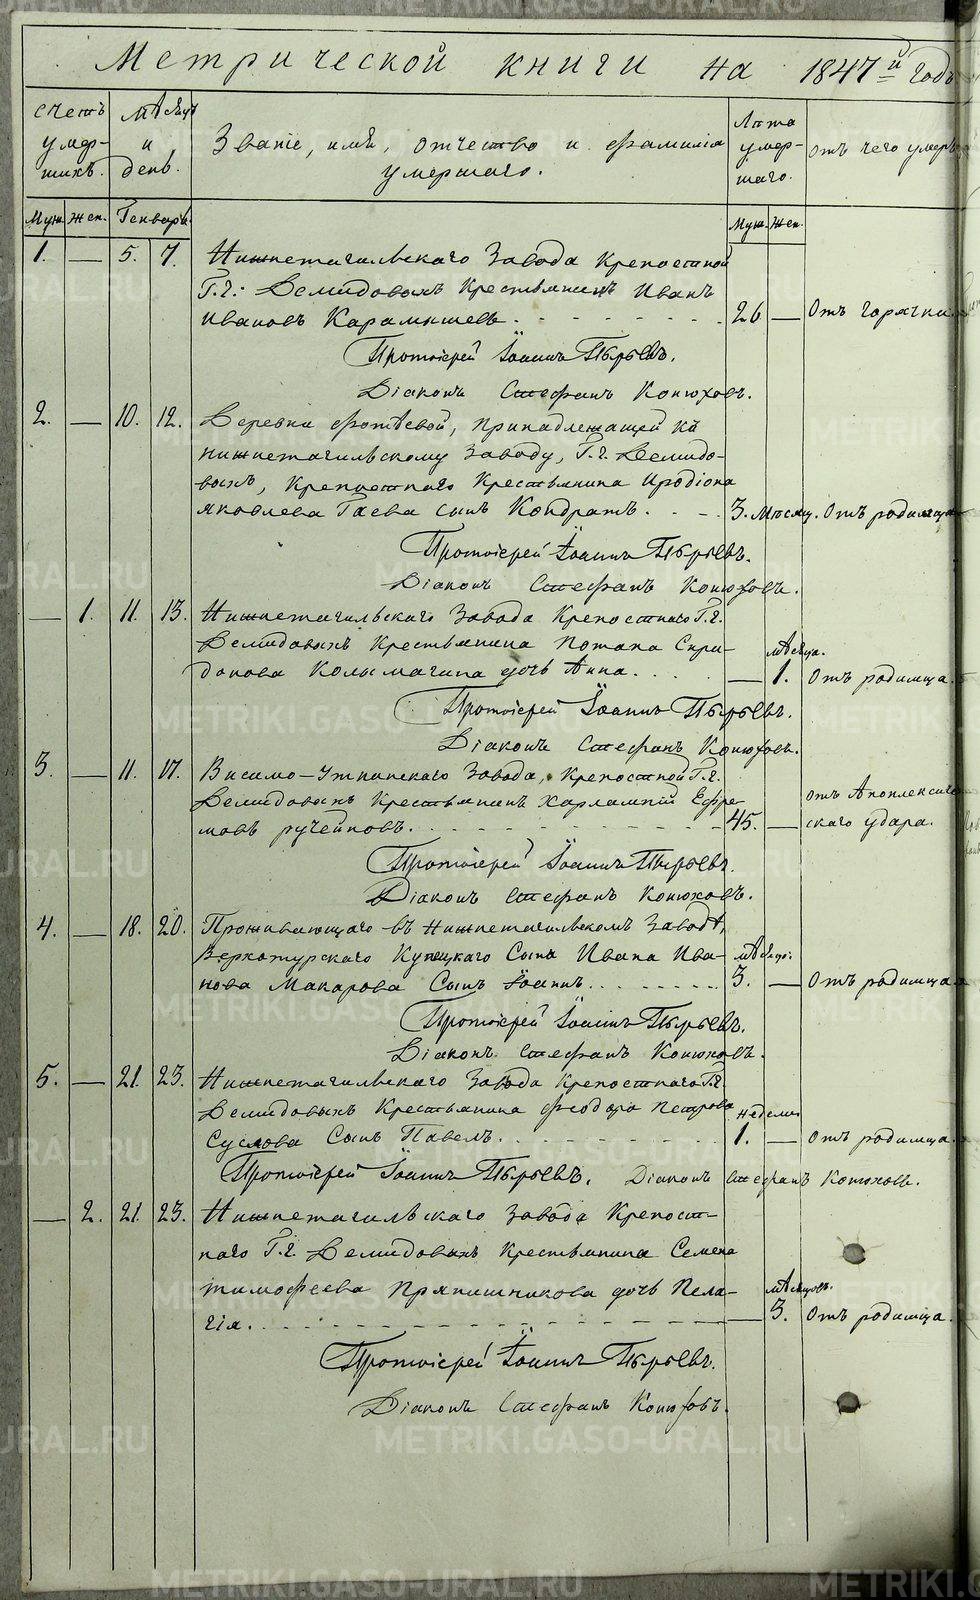 Метрической книги на 1847й годъ
счетъ умер- шихъ. мѣсяцъ и день. Званіе, имя, отчество и фамилія умершаго. Лѣта умер- шаго. отъ чего умеръ
Муж. Жен. Генварь. Муж. Жен.
1. — 5. 7. Нижнетагильскаго Завода Крепостной
Г.г: Демидовыхъ Крестьянинъ Иванъ
Ивановъ Карамышевъ. 26 — Отъ горячки.
Протоіерей Іоаннъ Пырьевъ.
Діаконъ Стефанъ Конюховъ.
2. — 10. 12. Деревни Фотѣевой, принадлежащей къ
нижнетагильскому заводу, Г.г. Демидо-
выхъ, Крепостнаго Крестьянина Иродіона
Яковлева Гаева сынъ Кондратъ. 3. мѣсяц. Отъ родимца
Протоіерей Іоаннъ Пырьевъ.
Діаконъ Стефанъ Конюховъ.
— 1. 11. 13. Нижнетагильскаго Завода Крепостнаго Г.г.
Демидовыхъ Крестьянина Потапа Спири-
донова Колымагина дочь Анна. — мѣсяца. 1. Отъ родимца.
Протоіерей Іоаннъ Пырьевъ.
Діаконъ Стефанъ Конюховъ.
3. — 11. 17. Висимо-Уткинскаго Завода, Крепостной Г.г.
Демидовыхъ Крестьянинъ Харлампій Ефре-
мовъ ручейновъ. 45. — отъ Апоплексиче-
скаго удара.
Протоіерей Іоаннъ Пырьевъ.
Діаконъ Стефанъ Конюховъ.
4. — 18. 20. Проживающаго въ Нижнетагильскомъ Заводѣ,
Верхотурскаго Купецкаго Сына Ивана Ива-
нова Макарова Сынъ Іоаннъ. мѣсяцо: 3. — Отъ родимца
Протоіерей Іоаннъ Пырьевъ.
Діаконъ Стефанъ Конюховъ.
5. — 21. 23. Нижнетагильскаго Завода Крепостнаго Г.г.
Демидовыхъ Крестьянина Феодора Петрова
Суслова Сынъ Павелъ. недели 1. — отъ родимца.
Протоіерей Іоаннъ Пырьевъ. Діаконъ Стефанъ Конюховъ.
— 2. 21. 23. Нижнетагильскаго Завода Крепост-
наго Г.г. Демидовыхъ Крестьянина Семена
тимофеева Пряпишникова дочь Пела-
гія. — мѣсяцовъ. 3. Отъ родимца.
Протоіерей Іоаннъ Пырьевъ.
Діаконъ Стефанъ Конюховъ.
METRIKI.GASO-URAL.RU